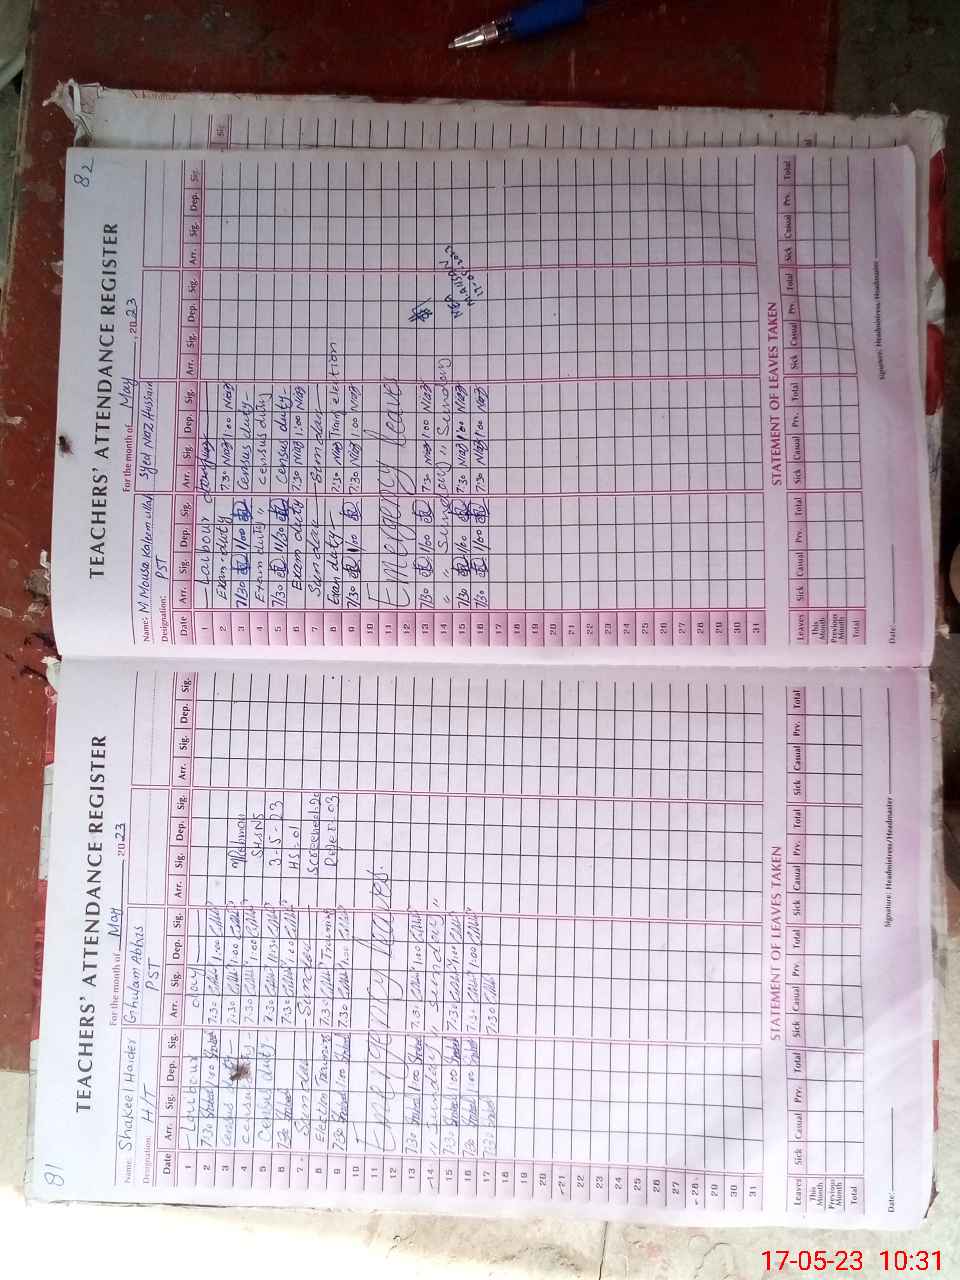 81
TEACHERS' ATTENDANCE REGISTER
For the month of May, 2023
Name: Shakeel Haider Ghulam Abbas
Designation: H/T PST
Date Arr. Sig. Dep. Sig. Arr. Sig. Dep. Sig. Arr. Sig. Dep. Sig. Arr. Sig. Dep. Sig.
1 Labour day
2 7:30 1:00 7:30 1:00
3 Census duty 7:30 1:00
4 Census duty 7:30 1:00
5 Census duty 7:30 11:30
6 7:30 7:30 1:00
7 Sunday Sunday
8 Election Training 7:30 Training
9 7:30 1:00 7:30 1:00
10
11 Emergency leaves.
12
13 7:30 1:00 7:30 1:00
14 " Sunday " " Sunday "
15 7:30 1:00 7:30 1:00
16 7:30 1:00 7:30 1:00
17 7:30 7:30
18
19
20
21
22
23
24
25
26
27
28
29
30
31
SHSNS
3-5-23
HS=01
Screened:20
Refer:03
STATEMENT OF LEAVES TAKEN
Leaves Sick Casual Prv. Total Sick Casual Prv. Total Sick Casual Prv. Total Sick Casual Prv. Total
This Month
Previous Month
Total
Date: Signature: Headmistress/Headmaster
82
TEACHERS' ATTENDANCE REGISTER
For the month of May, 2023
Name: M. Mousa Kaleemullah Syed Niaz Hussain
Designation: PST
Date Arr. Sig. Dep. Sig. Arr. Sig. Dep. Sig. Arr. Sig. Dep. Sig. Arr. Sig. Dep. Sig.
1 Labour day
2 Exam duty 7:30 Niaz 1:00 Niaz
3 7/30 1/00 Census duty
4 Exam duty " census duty
5 7/30 11/30 Census duty
6 Exam duty 7:30 Niaz 1:00 Niaz
7 Sunday Sunday
8 Exam duty 7:30 Niaz Train election
9 7/30 1/00 7:30 Niaz 1:00 Niaz
10
11 Emergency leaves
12
13 7/30 1/00 7:30 Niaz 1:00 Niaz
14 " Sunday " Sunday
15 7/30 1/00 7:30 Niaz 1:00 Niaz
16 7/30 1/00 7:30 Niaz 1:00 Niaz
17
18
19
20
21
22
23
24
25
26
27
28
29
30
31
STATEMENT OF LEAVES TAKEN
Leaves Sick Casual Prv. Total Sick Casual Prv. Total Sick Casual Prv. Total Sick Casual Prv. Total
This Month
Previous Month
Total
Date: Signature: Headmistress/Headmaster
Sig.
17-05-23 10:31